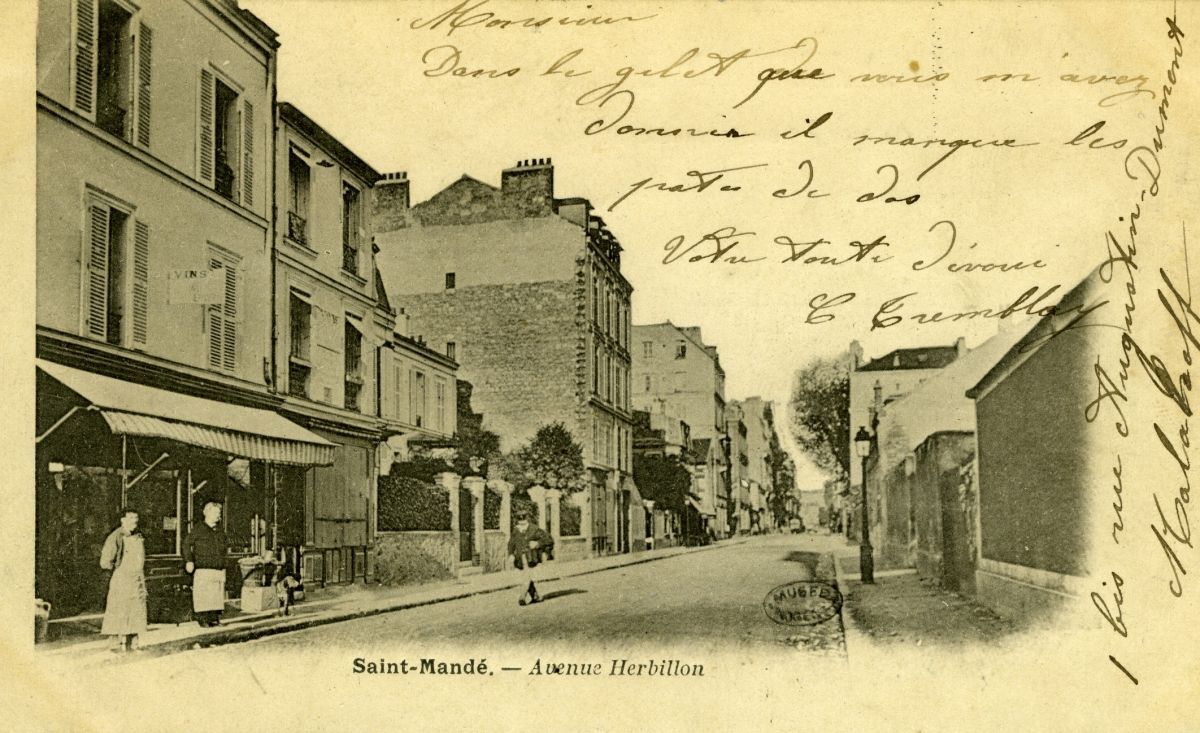 Monsieur
Dans le gilet que vous m'avez
donner il manque les
pates de dos
Votre toute dévoué
C Tremblay
1 bis rue Augustin-Dumont
Malakoff
VINS
MUSÉE
Saint-Mandé. — Avenue Herbillon